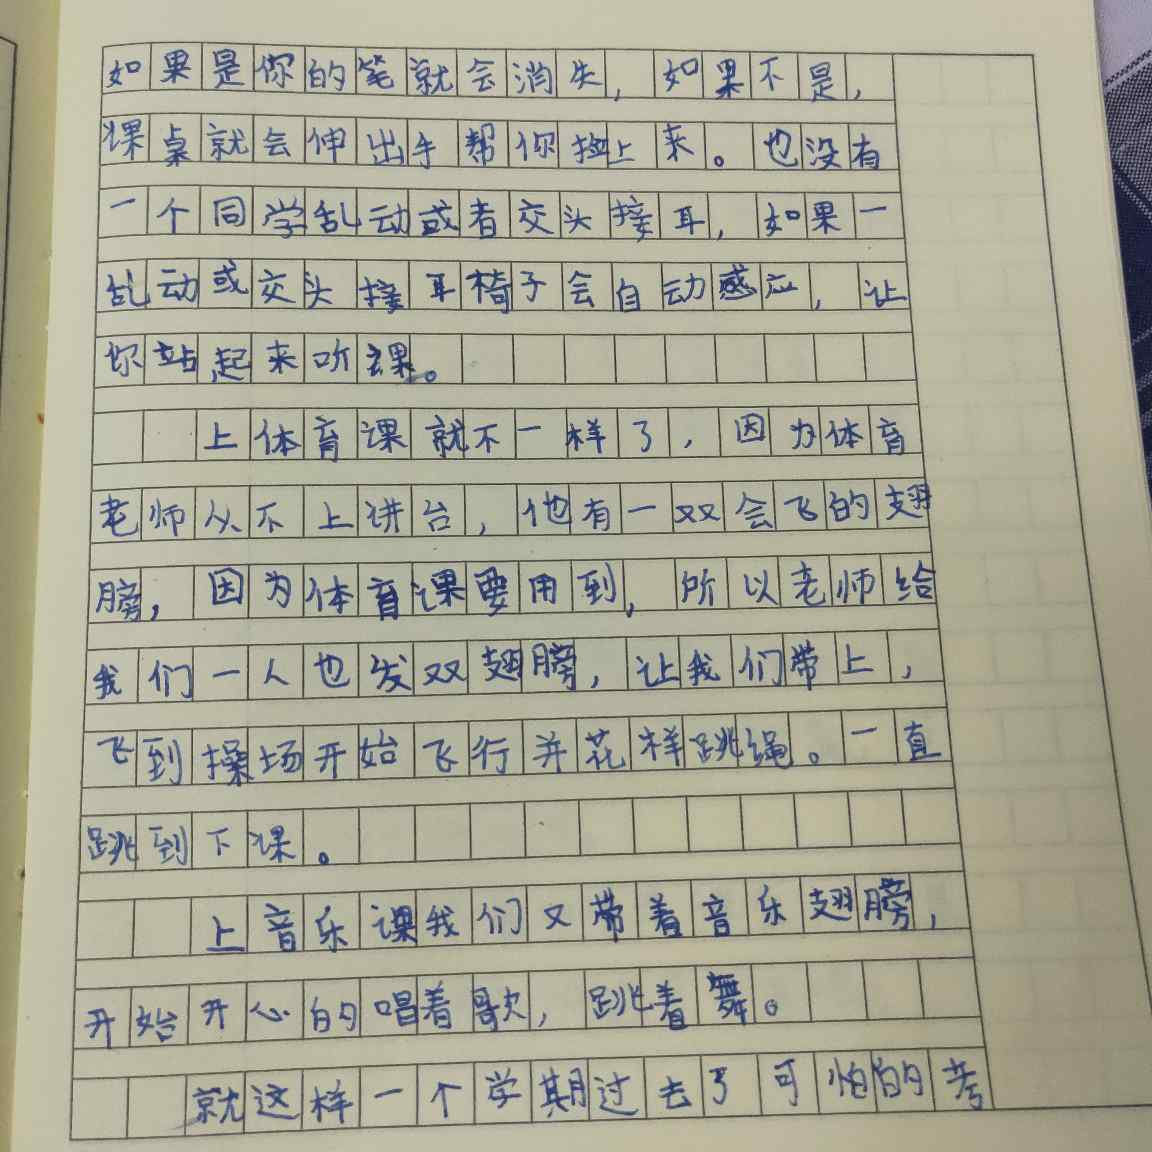 如果是你的笔就会消失，如果不是，
课桌就会伸出手帮你捡上来。也没有
一个同学乱动或者交头接耳，如果一
乱动或交头接耳椅子会自动感应，让
你站起来听课。
上体育课就不一样了，因为体育
老师从不上讲台，他有一双会飞的翅
膀，因为体育课要用到，所以老师给
我们一人也发双翅膀，让我们带上，
飞到操场开始飞行并花样跳绳。一直
跳到下课。
上音乐课我们又带着音乐翅膀，
开始开心的唱着歌，跳着舞。
就这样一个学期过去了可怕的考